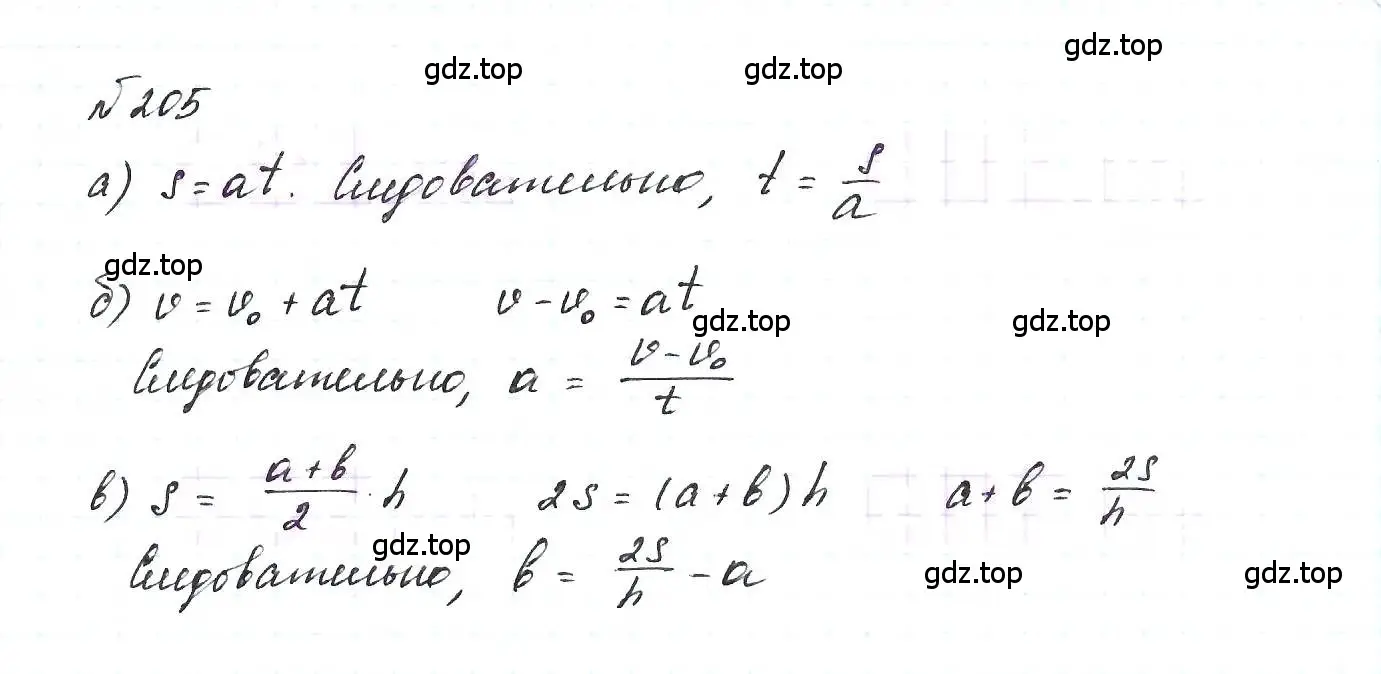 gdz.top
gdz.top gdz.top
№ 205
а) s = at. Следовательно, t = s/a
gdz.top
б) v = v₀ + at v - v₀ = at
gdz.top gdz.top
Следовательно, a = (v - v₀)/t
в) s = (a + b)/2 · h 2s = (a + b)h a + b = 2s/h
gdz.top
Следовательно, b = 2s/h - a
gdz.top gdz.top